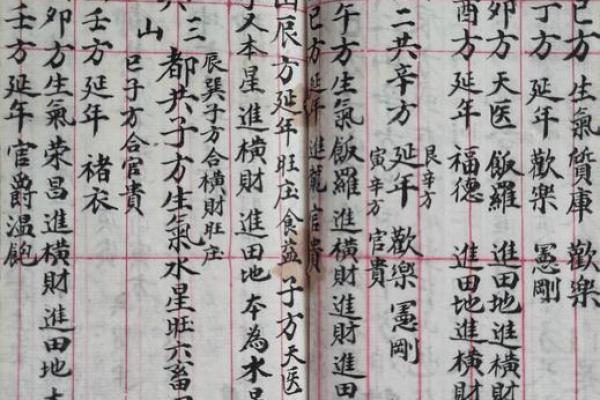 巳方 生氣 質庫 歡樂
丁方 延年 歡樂 憲剛
卯方 天医 飯羅 進田地進橫財
酉方 延年 福德 進田地進橫財
艮辛方
二共辛方 延年 歡樂 憲剛
寅辛方 官貴
午方生氣飯羅進橫財進田
巳方延年 進龍 官貴
辰方延年旺庄食益 子方天医
又本星進橫財 進田地 本為水星
辰巽子方合橫財旺庄
三 都共子方生氣水星旺六畜
山 巳子方合官貴
壬方 延年 褚衣
卯方生氣荣昌進橫財 進田地
壬方延年官爵溫飽